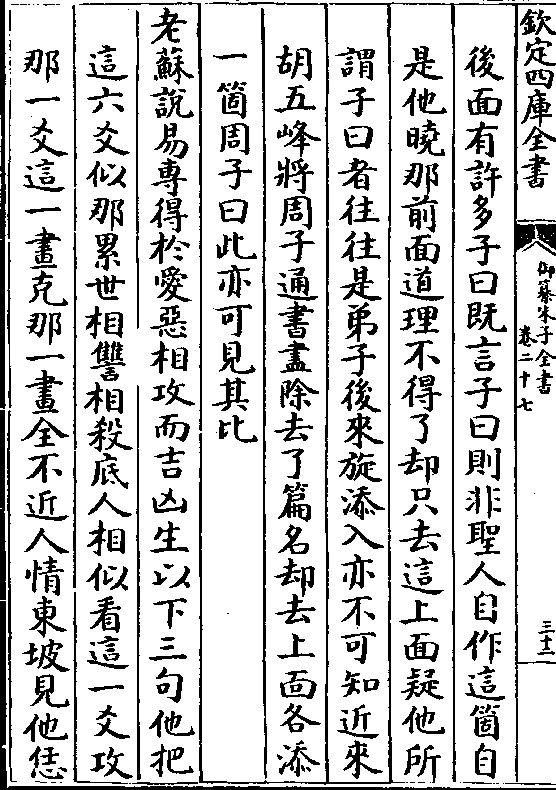 欽定四庫全書
御纂朱子全書
卷二十七
三十二
後面有許多子曰既言子曰則非聖人自作這箇自
是他曉那前面道理不得了却只去這上面疑他所
謂子曰者往往是弟子後來旋添入亦不可知近來
胡五峰將周子通書盡除去了篇名却去上面各添
一箇周子曰此亦可見其比
老蘇說易專得於愛惡相攻而吉凶生以下三句他把
這六爻似那累世相讐相殺底人相似看這一爻攻
那一爻這一畫克那一畫全不近人情東坡見他恁